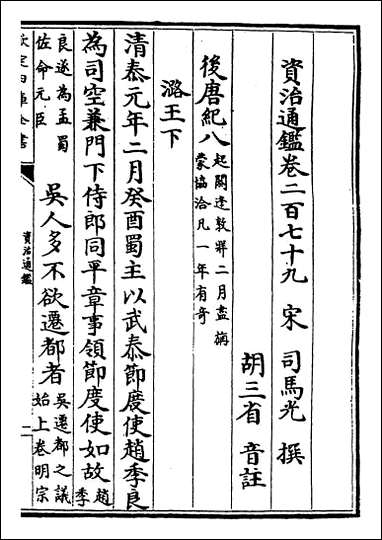 資治通鑑卷二百七十九 宋 司馬光 撰
胡三省 音註
後唐紀八起閼逢敦牂二月盡旃
蒙協洽凡一年有奇
潞王下
清泰元年二月癸酉蜀主以武泰節度使趙季良
為司空兼門下侍郎同平章事領節度使如故趙季
良遂為孟蜀
佐命元臣
吳人多不欲遷都者吳遷都之議
始上卷明宗
欽定四庫全書
資治通鑑
一